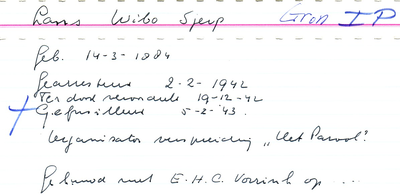 Lans Wibo Sjerp Gron IP
Geb. 14-3-1884
Gearresteerd 2-2-1942
Ter dood veroordeeld 19-12-42
Gefusilleerd 5-2-'43.
organisator verspreiding „Het Parool".
Gehuwd met E.H.C. Vorrink op ....